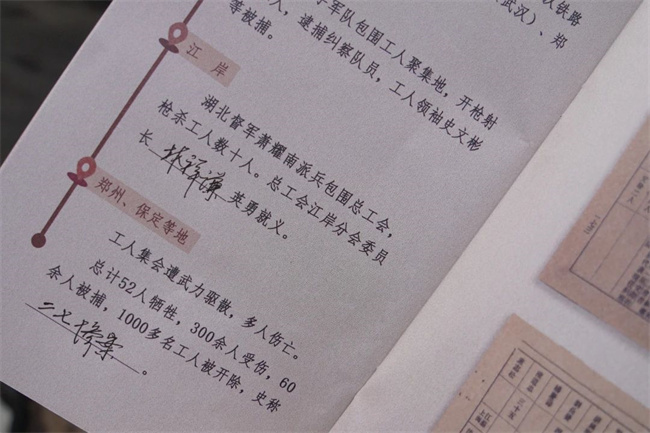 汉铁路
武汉）、郑
军队包围工人聚集地，开枪射
人，逮捕纠察队员，工人领袖史文彬
等被捕。
江岸
湖北督军萧耀南派兵包围总工会，
枪杀工人数十人。总工会江岸分会委员
长林祥谦英勇就义。
郑州、保定等地
工人集会遭武力驱散，多人伤亡。
总计52人牺牲，300余人受伤，60
余人被捕，1000多名工人被开除，史称
二七惨案。